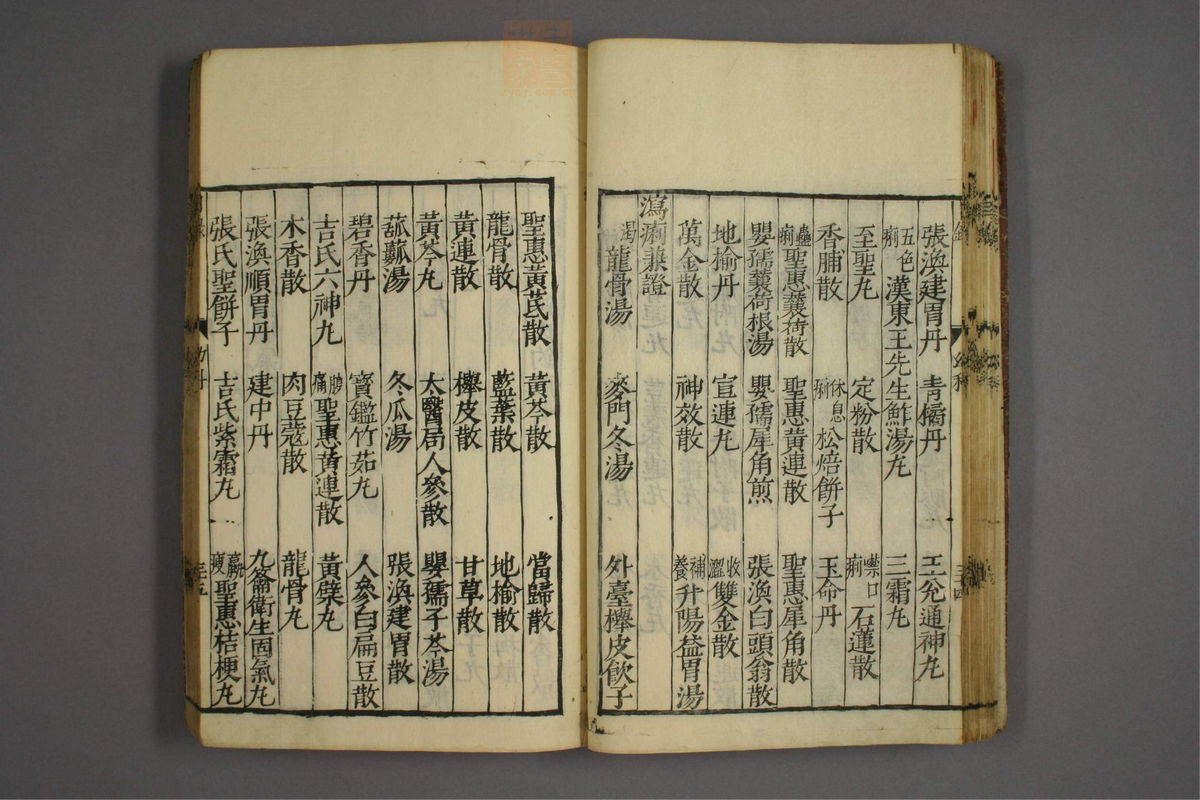 張渙建胃丹　青橘丹　王兊通神丸
五色痢　漢東王先生鮓湯丸　三霜丸
至聖丸　定粉散　噤口痢　石蓮散
香脯散　休息痢　松焙餅子　玉命丹
蠱痢　聖惠蘘荷散　聖惠黃連散　聖惠犀角散
嬰孺蘘荷根湯　嬰孺犀角煎　張渙白頭翁散
地榆丹　宣連丸　收澀　雙金散
萬金散　神效散　補養　升陽益胃湯
瀉痢兼證
渴　龍骨湯　麥門冬湯　外臺櫸皮飲子
聖惠黃芪散　黃芩散　當歸散
龍骨散　藍葉散　地榆散
黃連散　櫸皮散　甘草散
黃芩丸　太醫局人參散　嬰孺子芩湯
菰蓏湯　冬瓜湯　張渙建胃散
碧香丹　寶鑑竹茹丸　人參白扁豆散
吉氏六神丸　腹痛　聖惠黃連散　黃蘗丸
木香散　肉豆蔻散　龍骨丸
張渙順胃丹　建中丹　九籥衛生固氣丸
張氏聖餅子　吉氏紫霜丸　羸瘦　聖惠桔梗丸
三五